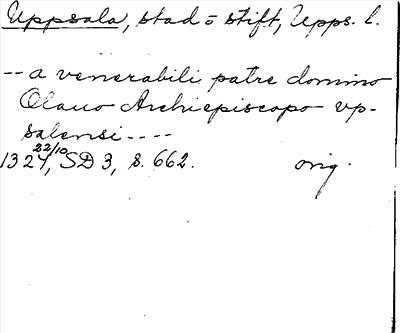 Uppsala, stad o stift, Upps. l.
-- a venerabili patre domino
Olauo Archiepiscopo vp-
salensi ----
1324 22/10, SD 3, s. 662. orig.